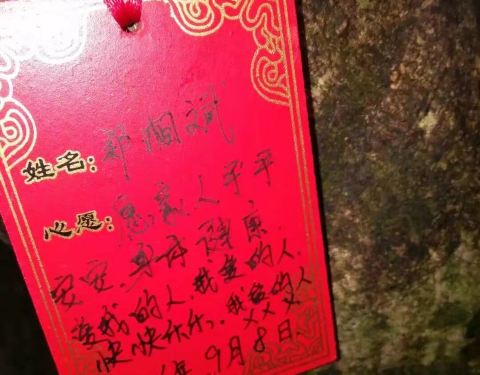 姓名: 郑国斌
心愿: 愿家人平平
安安.身体健康.
爱我的人.我爱的人.
快快乐乐.我爱的人
××× 
年9月8日.